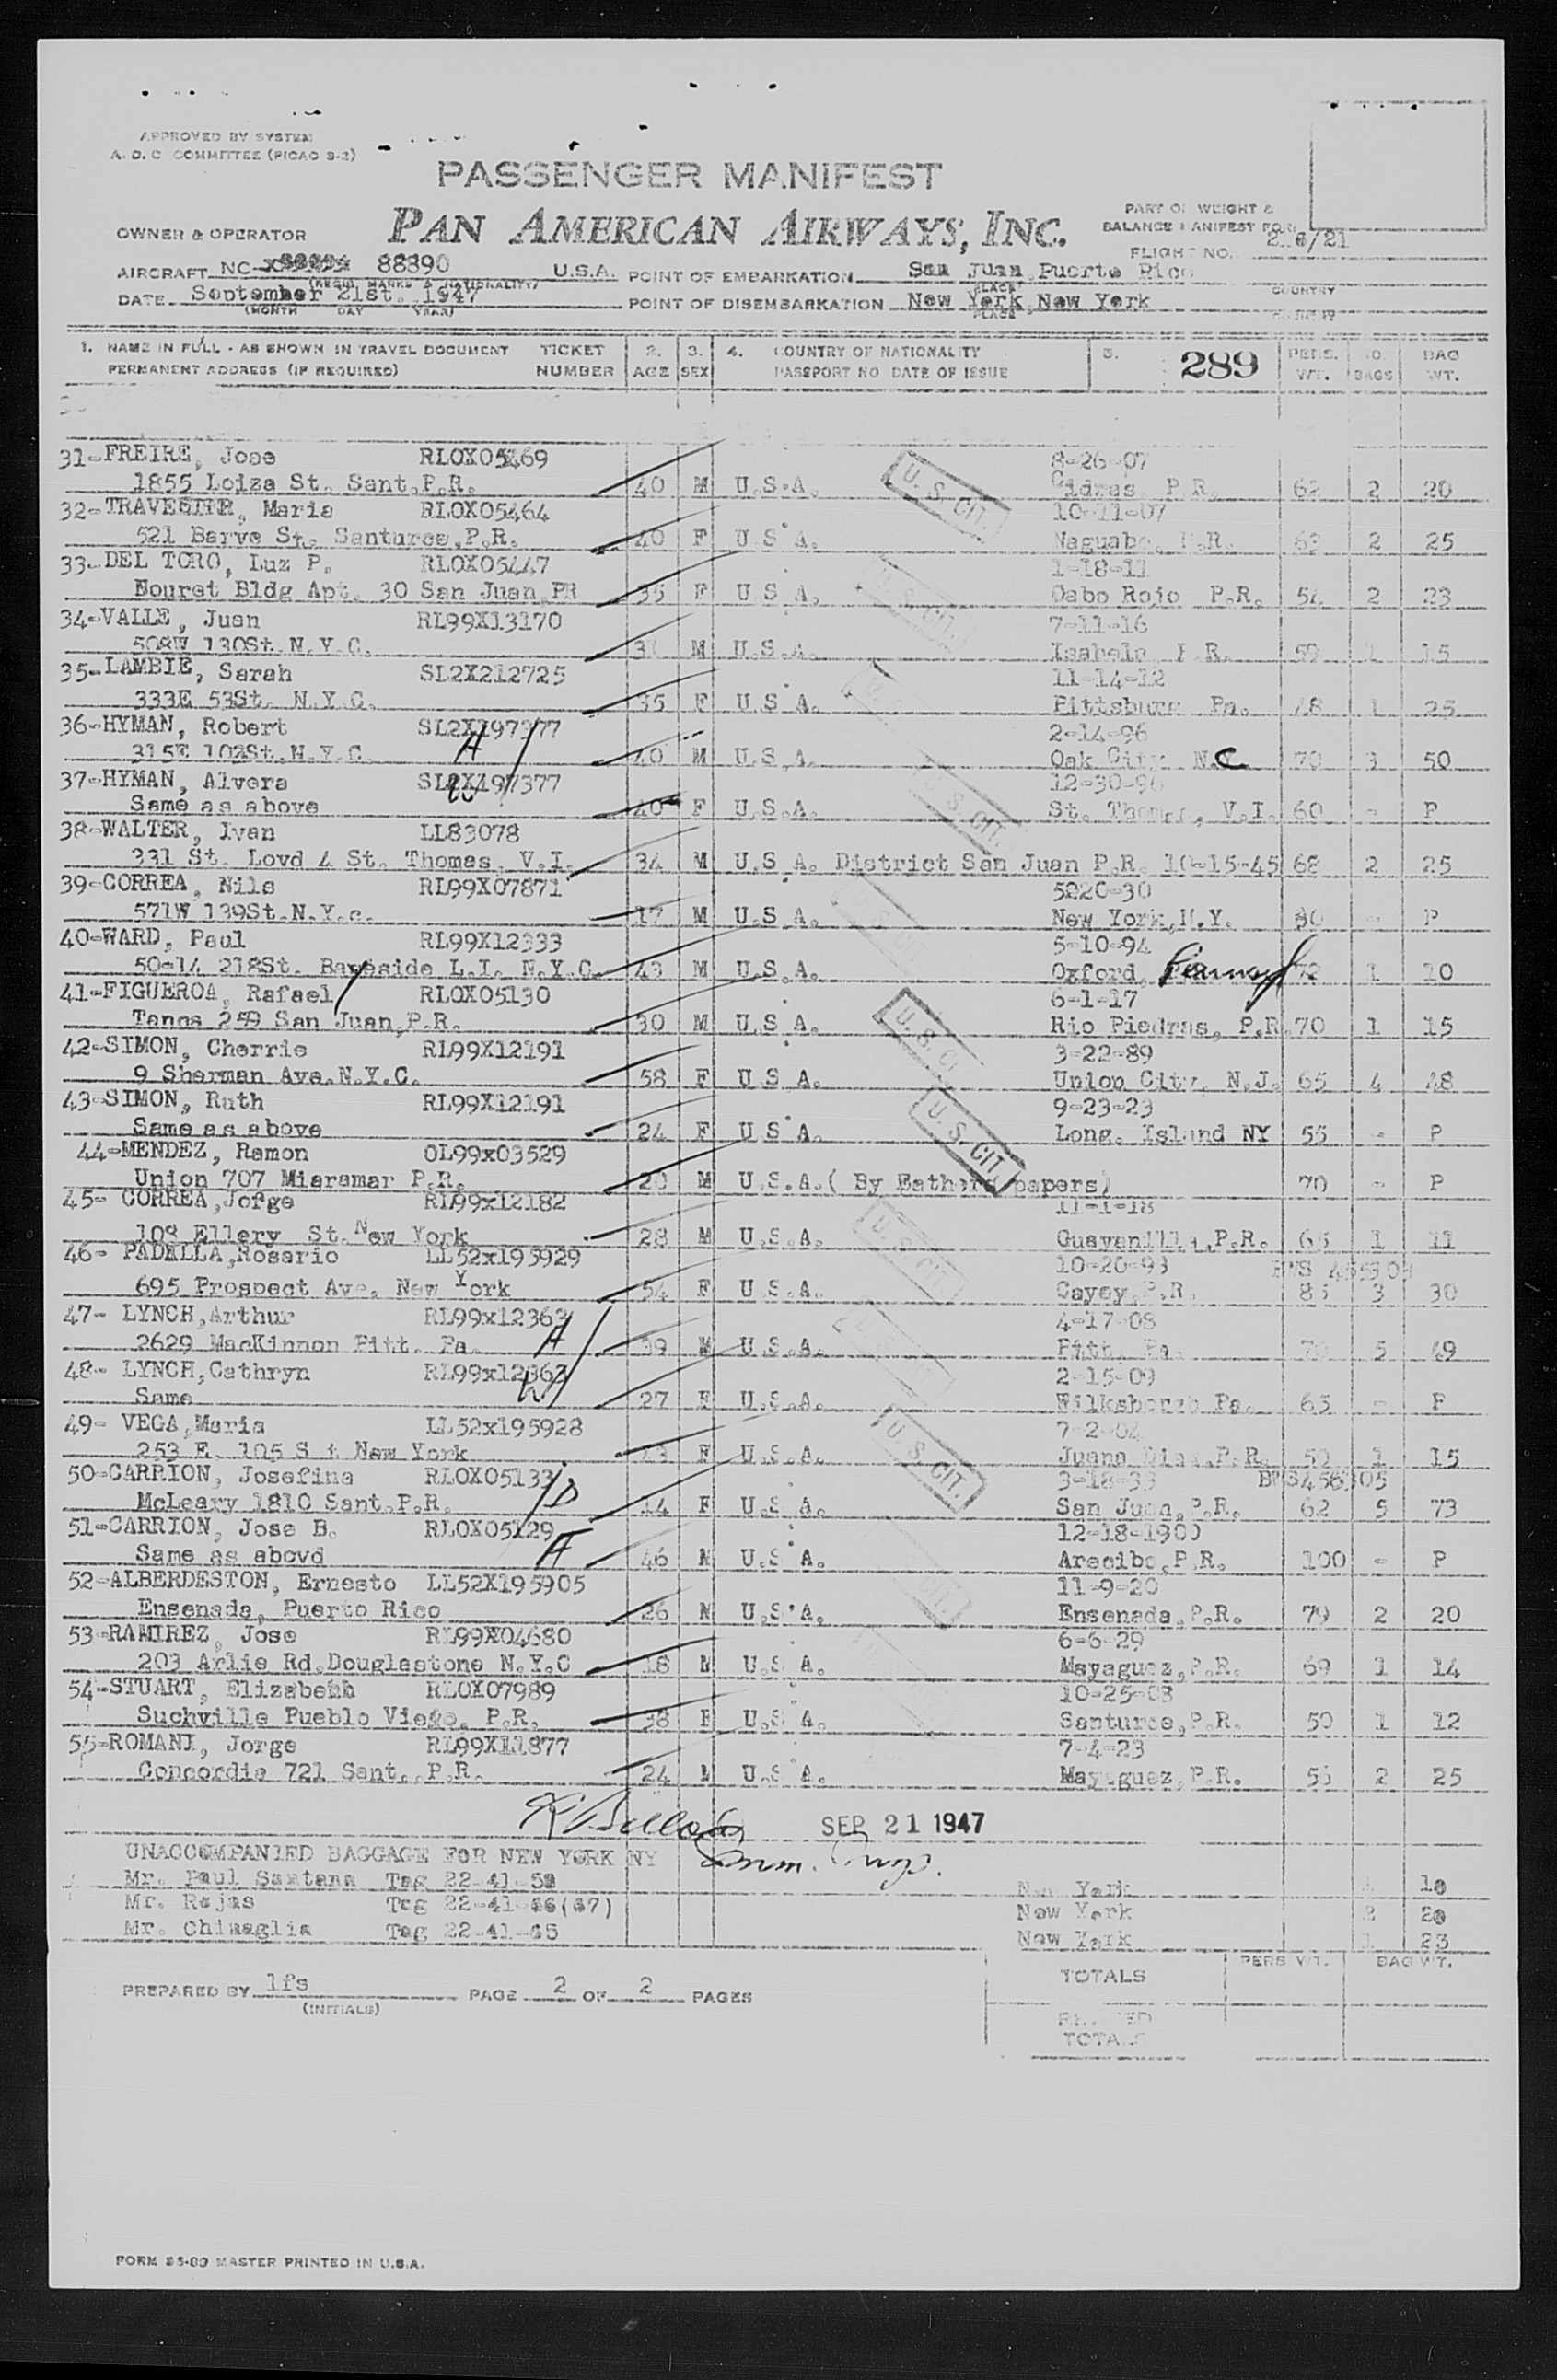 APPROVED BY SYSTEM
A. O. C COMMITTEE (PICAO 9-2)
PASSENGER MANIFEST
PAN AMERICAN AIRWAYS, INC.
OWNER & OPERATOR
PART OF WEIGHT &
BALANCE MANIFEST FOR
FLIGHT NO. 2 6/21
AIRCRAFT NC- 88890 U.S.A. POINT OF EMBARKATION San Juan, Puerto Rico
(REGIS. MARKS & NATIONALITY) PLACE COUNTRY
DATE September 21st. 1947 POINT OF DISEMBARKATION New York, New York
(MONTH DAY YEAR) PLACE COUNTRY
1. NAME IN FULL - AS SHOWN IN TRAVEL DOCUMENT TICKET 2. 3. 4. COUNTRY OF NATIONALITY 5. 289 PERS. NO. BAG
PERMANENT ADDRESS (IF REQUIRED) NUMBER AGE SEX PASSPORT NO DATE OF ISSUE WT. BAGS WT.
31-FREIRE, Jose RLOX05469 8-26-07
1855 Loiza St. Sant.P.R. 40 M U.S.A. U.S. CIT. Cidras P.R. 62 2 20
32-TRAVECIER, Maria RLOX05464 10-11-07
521 Barve St. Santurce,P.R. 40 F U S A. Naguabo, P.R. 63 2 25
33-DEL TORO, Luz P. RLOX05447 1-18-11
Bouret Bldg Apt. 30 San Juan PR 35 F U S A. Cabo Rojo P.R. 54 2 23
34-VALLE, Juan RL99X13170 7-11-16
508W 130St.N.Y.C. M U.S.A. Isabela P.R. 59 1 15
35-LAMBIE, Sarah SL2X212725 11-14-12
333E 53St. N.Y.C. 35 F U S A. Pittsburg Pa. 48 1 25
36-HYMAN, Robert SL2X197377 2-14-96
315E 102St.N.Y.C. H 40 M U.S.A. Oak City N.C 70 3 50
37-HYMAN, Alvera SL2X197377 12-30-96
Same as above W 40 F U.S.A. U.S. CIT. St. Thomas, V.I. 60 - P
38-WALTER, Ivan LL83078
231 St. Lovd 4 St. Thomas, V.I. 34 M U.S A. District San Juan P.R. 10-15-45 68 2 25
39-CORREA, Nils RL99X07871 522C-30
571W 139St.N.Y.c. 17 M U.S A. New York,N.Y. 80 - P
40-WARD, Paul RL99X12333 5-10-94
50-14 218St. Bayeside L.I. N.Y.C. 43 M U.S.A. Oxford, 72 1 10
41-FIGUEROA, Rafael RLOX05130 6-1-17
Tanca 259 San Juan,P.R. 30 M U.S A. Rio Piedras, P.R. 70 1 15
42-SIMON, Cherrie RL99X12191 3-22-89
9 Sherman Ave.N.Y.C. 58 F U S A. Union City, N.J. 65 4 48
43-SIMON, Ruth RL99X12191 9-23-23
Same as above 24 F U S A. U.S. CIT. Long. Island NY 55 - P
44-MENDEZ, Ramon OL99x03529
Union 707 Miaramar P.R. 20 M U.S.A.( By Fathers papers) 70 - P
45- CORREA,Jorge RL99x12182 11-1-18
108 Ellery St.New York 28 M U.S.A. Guayanilla,P.R. 65 1 11
46- PADILLA,Rosario LL52x195929 10-20-93
695 Prospect Ave. New York 54 F U S.A. Cayey,P.R. 85 3 30
47- LYNCH,Arthur RL99x12362 4-17-08
2629 MacKinnon Pitt. Pa. H 39 M U.S.A. Pitt. Pa. 5 49
48- LYNCH,Cathryn RL99x12362 2-15-09
Same W 27 F U.S.A. Pa. 65 - P
49- VEGA,Maria LL52x195928 7-2-04
253 E. 105 St New York F U.S.A. U.S. CIT. Juana Diaz,P.R. 50 1 15
50-CARRION, Josefina RLOX05133 3-18-33
McLeary 1810 Sant.P.R. D 14 F U.S A. San Juan,P.R. 62 5 73
51-CARRION, Jose B. RLOX05129 12-18-1900
Same as abovd H 46 M U.S A. Arecibo,P.R. 100 - P
52-ALBERDESTON, Ernesto LL52X195905 11-9-20
Ensenada, Puerto Rico 26 M U.S A. Ensenada,P.R. 79 2 20
53-RAMIREZ, Jose RL99X04680 6-6-29
203 Arlie Rd.Douglastone N.Y.C 18 M U.S A. Mayaguez,P.R. 69 1 14
54-STUART, Elizabeth RLOX07989 10-25-08
Suchville Pueblo Viego, P.R. 38 F U.S A. Santurce,P.R. 50 1 12
55-ROMANI, Jorge RL99X11877 7-4-23
Concordia 721 Sant. P.R. 24 M U.S.A. Mayaguez,P.R. 55 2 25
SEP 21 1947
UNACCOMPANIED BAGGAGE FOR NEW YORK NY Imm. Insp.
Mr. Paul Santana Tag 22-41-50 New York 10
Mr. Rojas Tag 22-41-66(67) New York 2 20
Mr. Chinaglia Tag 22-41-65 New York 1 23
PERS WT. BAG WT.
TOTALS
PREPARED BY lfs PAGE 2 OF 2 PAGES
(INITIALS)
TOTALS
FORM 35-80 MASTER PRINTED IN U.S.A.